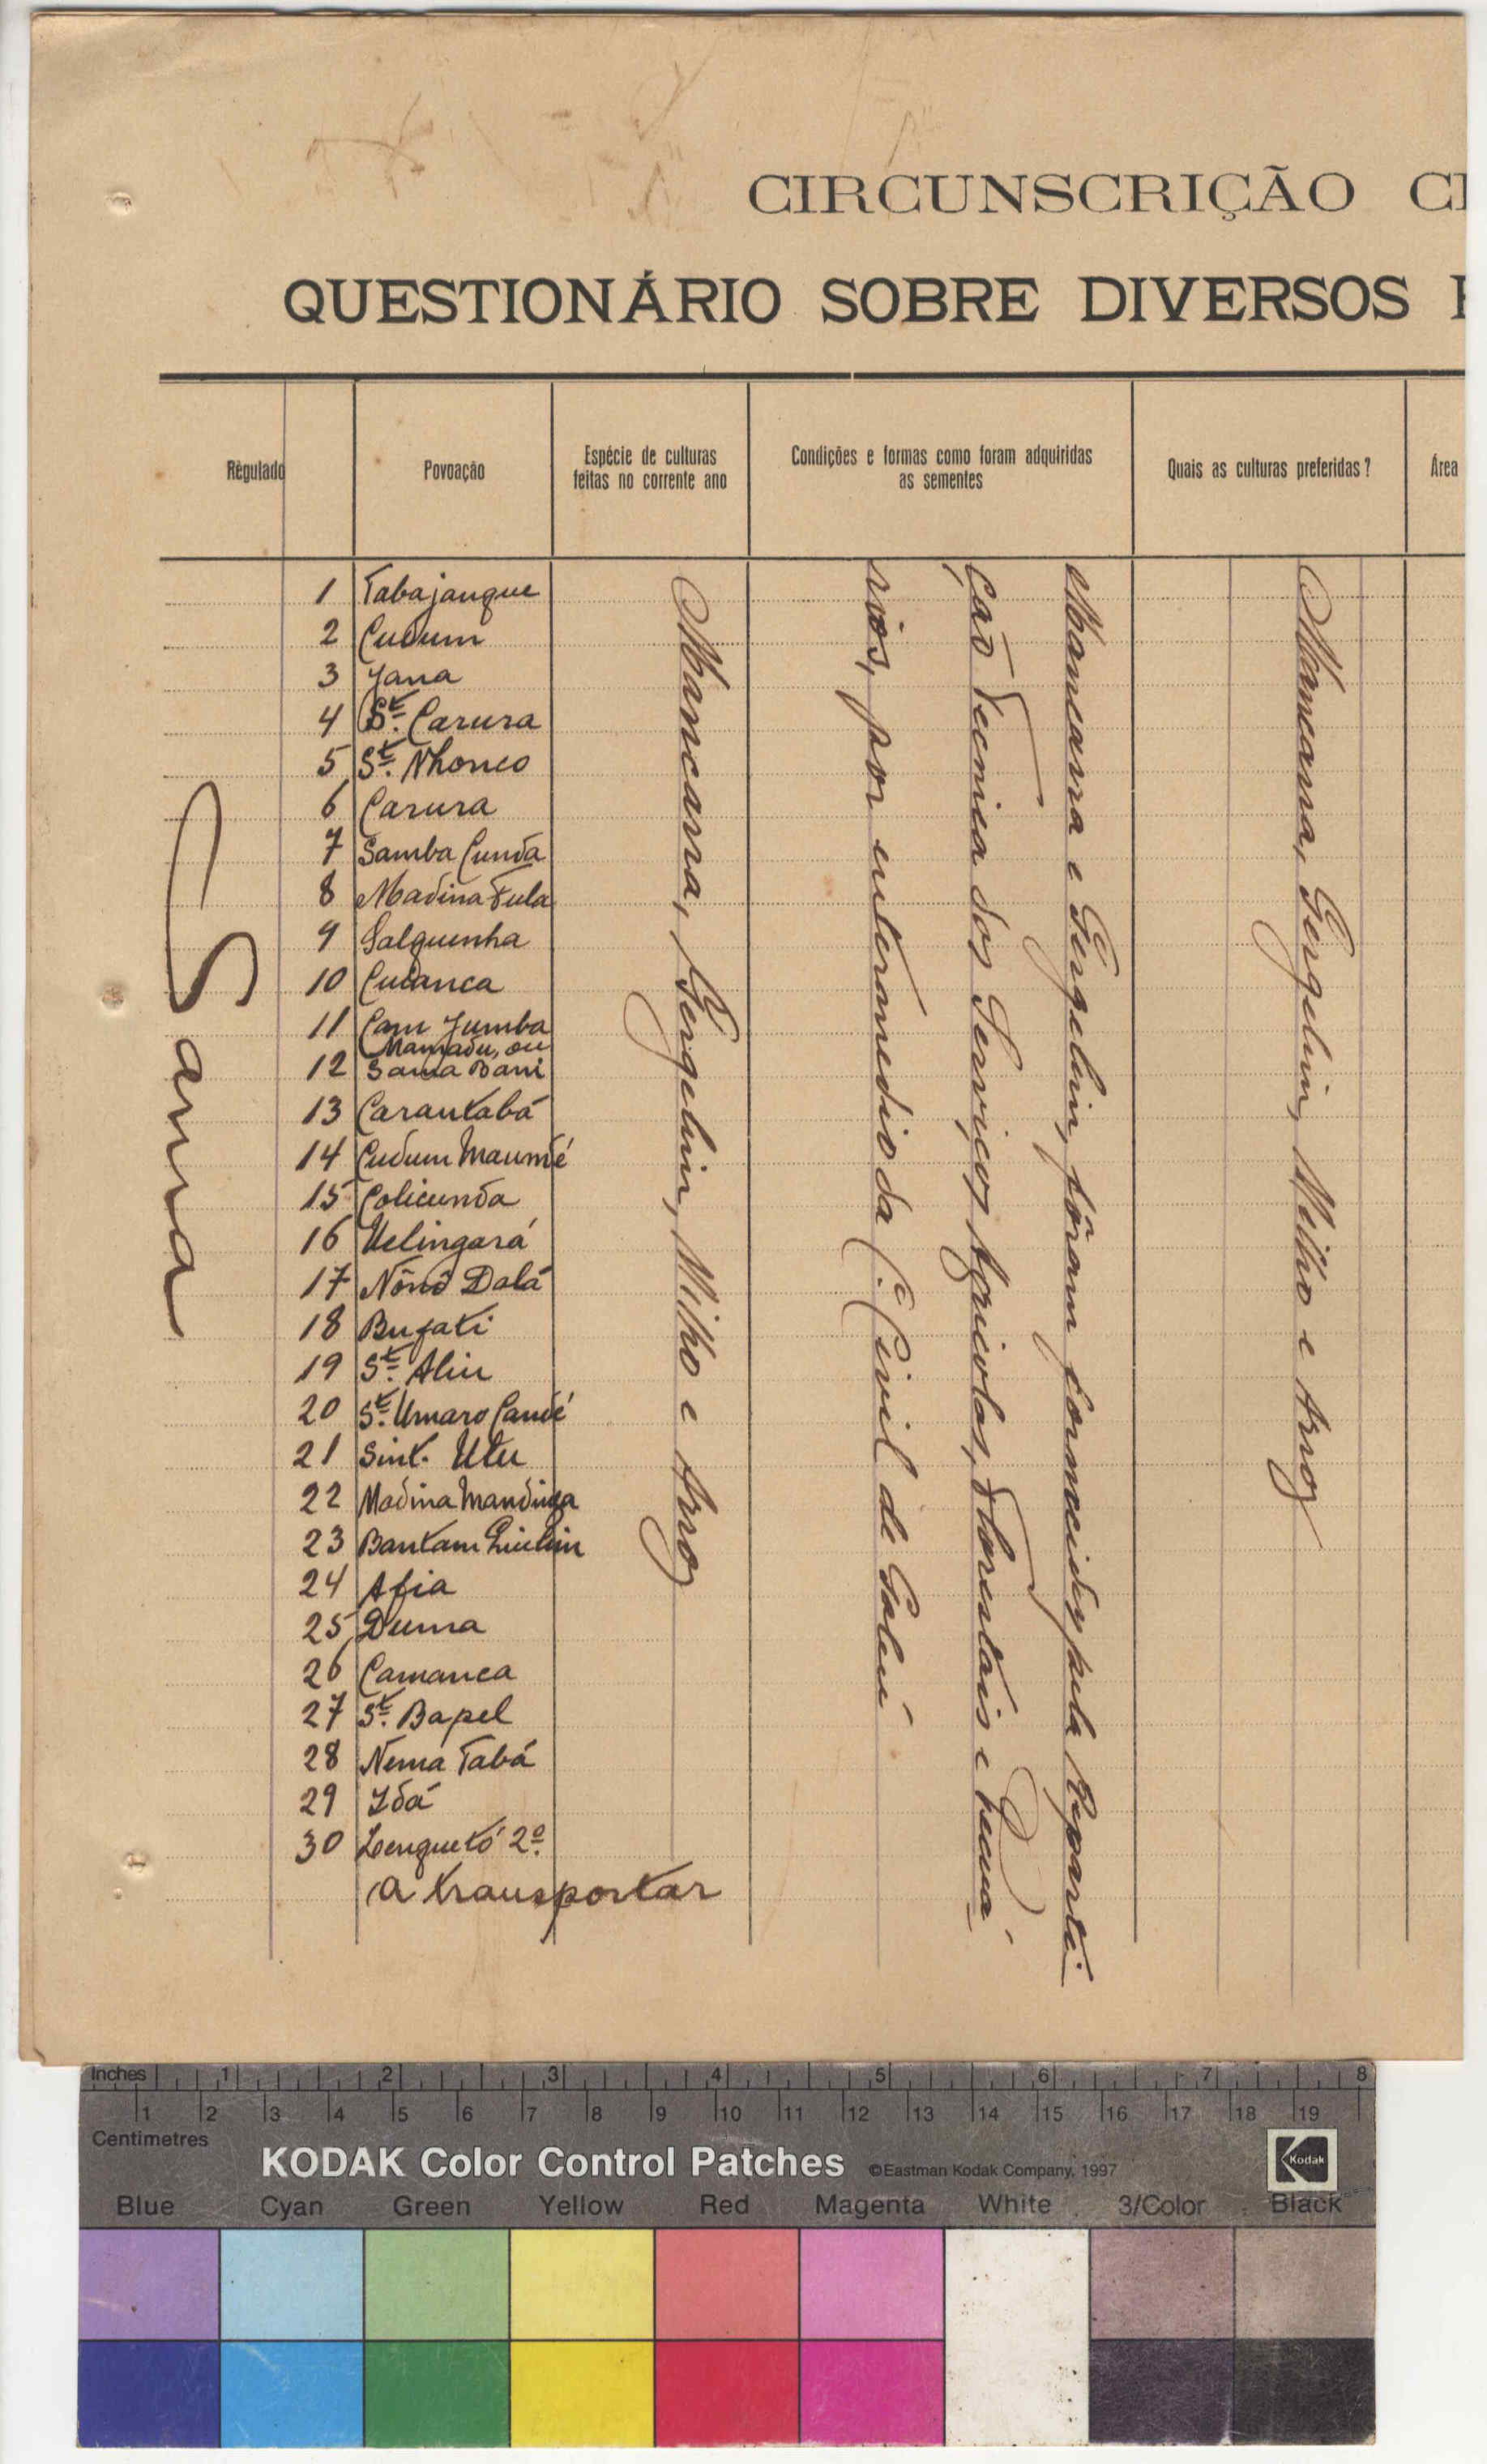 CIRCUNSCRIÇÃO CI
QUESTIONÁRIO SOBRE DIVERSOS
Régulado
Povoação
Espécie de culturas
feitas no corrente ano
Condições e formas como foram adquiridas
as sementes
Quais as culturas preferidas?
Área
Sama
1 Tabajanque
2 Cudum
3 Jana
4 St. Carura
5 St. Nhonco
6 Carura
7 Samba Cunda
8 Madina Fula
9 Salquenha
10 Cudanca
11 Cam Jumba
Mamadu, ou
12 Sama Bani
13 Carantabá
14 Cudum Maundé
15 Colicunda
16 Velingará
17 Nônô Dalá
18 Bujati
19 St. Aliu
20 St. Umaro Candé
21 Sint. Utu
22 Madina Mandinga
23 Bantam
24 Afia
25 Duma
26 Camanca
27 St. Bapel
28 Nema Tabá
29 Idá
30 Lenquetó 2º.
A transportar
Mancarra, Gergelim, Milho e Arroz
Mancarra e Gergelim, fôram fornecidos pela Reparti-
ção Técnica dos Serviços Agricolas, Florestais e Pecuá-
rios, por intermedio da C.ᶜ Civil de Gabú
Mancarra, Gergelim, Milho e Arroz
Inches 1 2 3 4 5 6 7 8
1 2 3 4 5 6 7 8 9 10 11 12 13 14 15 16 17 18 19
Centimetres
KODAK Color Control Patches ©Eastman Kodak Company, 1997 Kodak
Blue Cyan Green Yellow Red Magenta White 3/Color Black